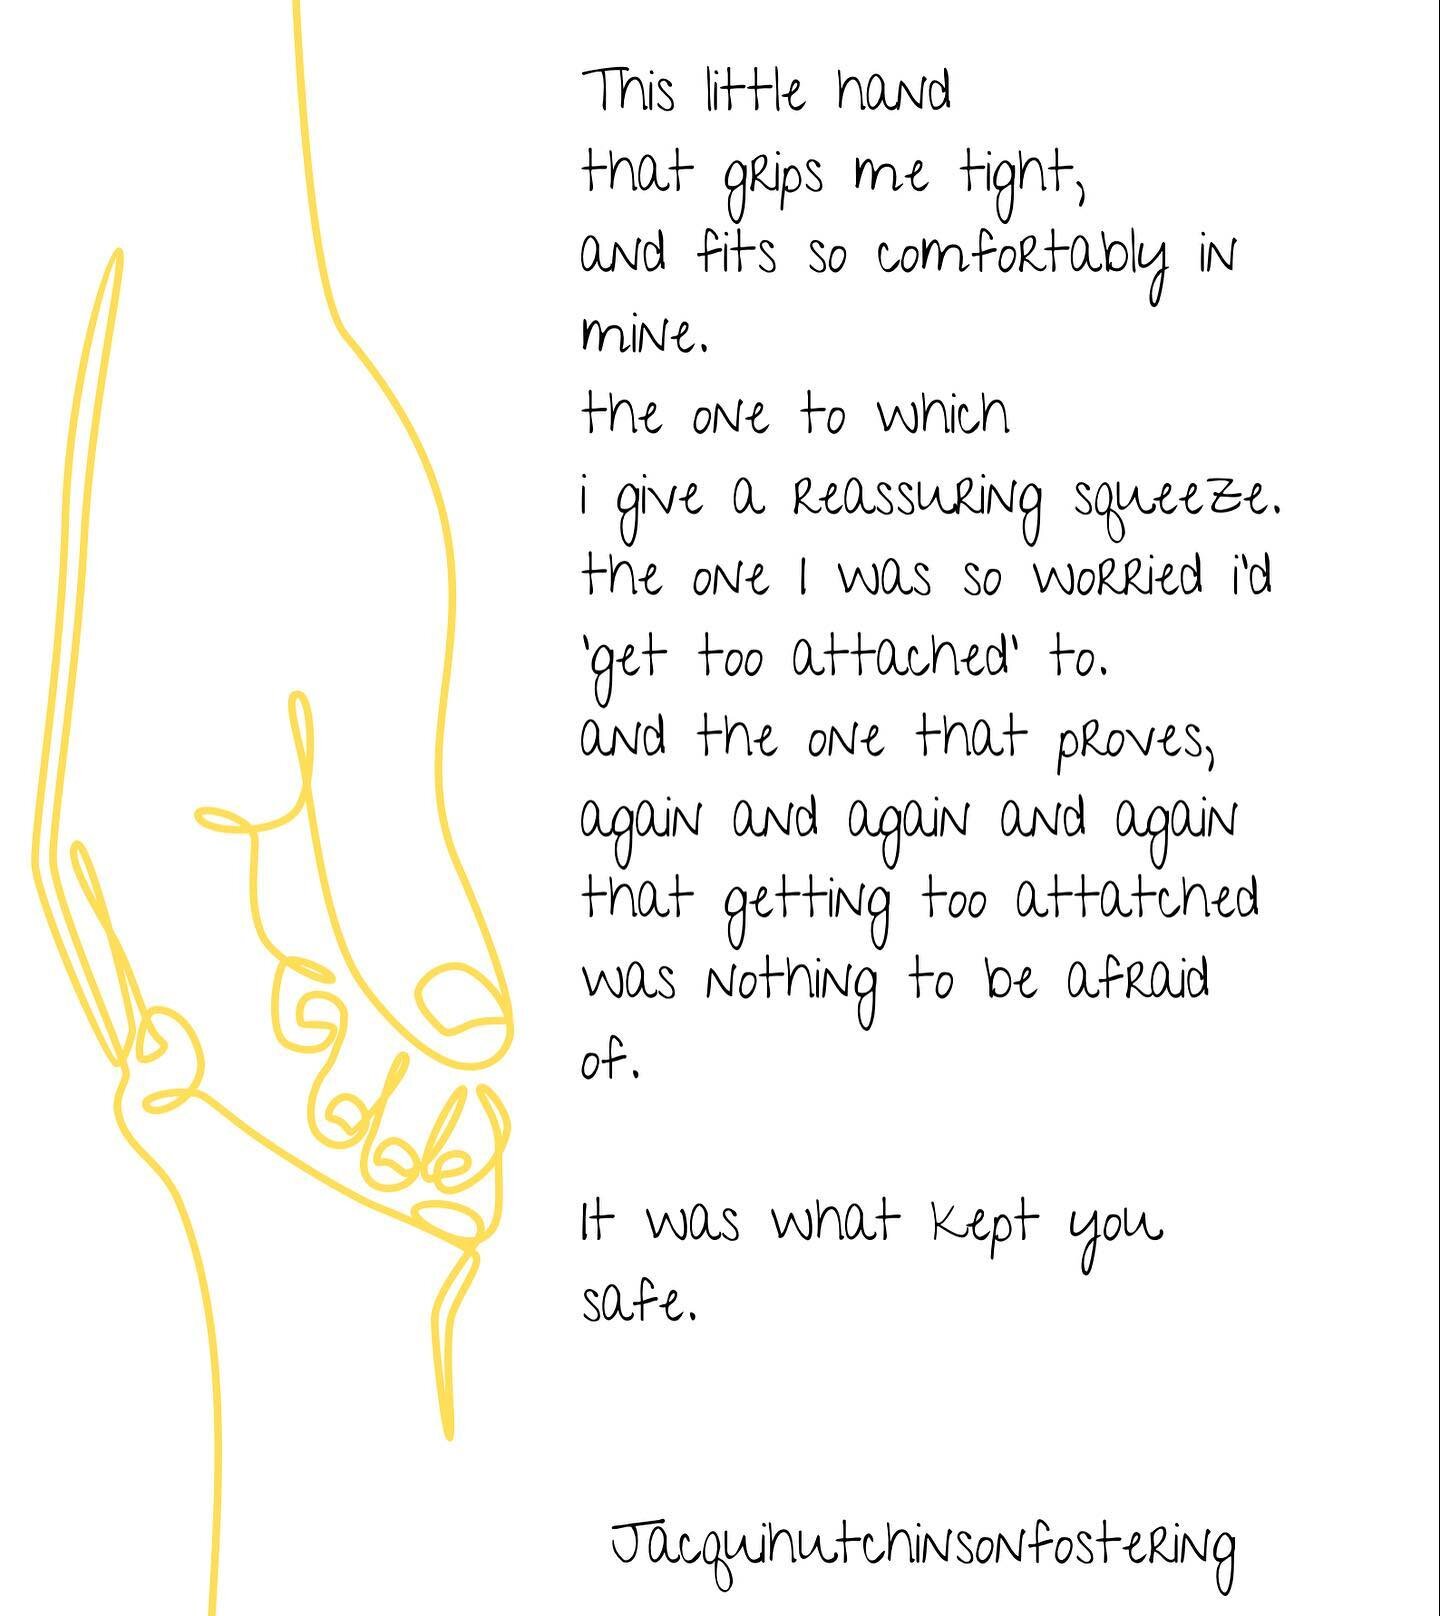 This little hand
that grips me tight,
and fits so comfortably in
mine.
the one to which
i give a reassuring squeeze.
the one I was so worried i'd
'get too attached' to.
and the one that proves,
again and again and again
that getting too attatched
was nothing to be afraid
of.
It was what kept you
safe.
Jacquihutchinsonfostering